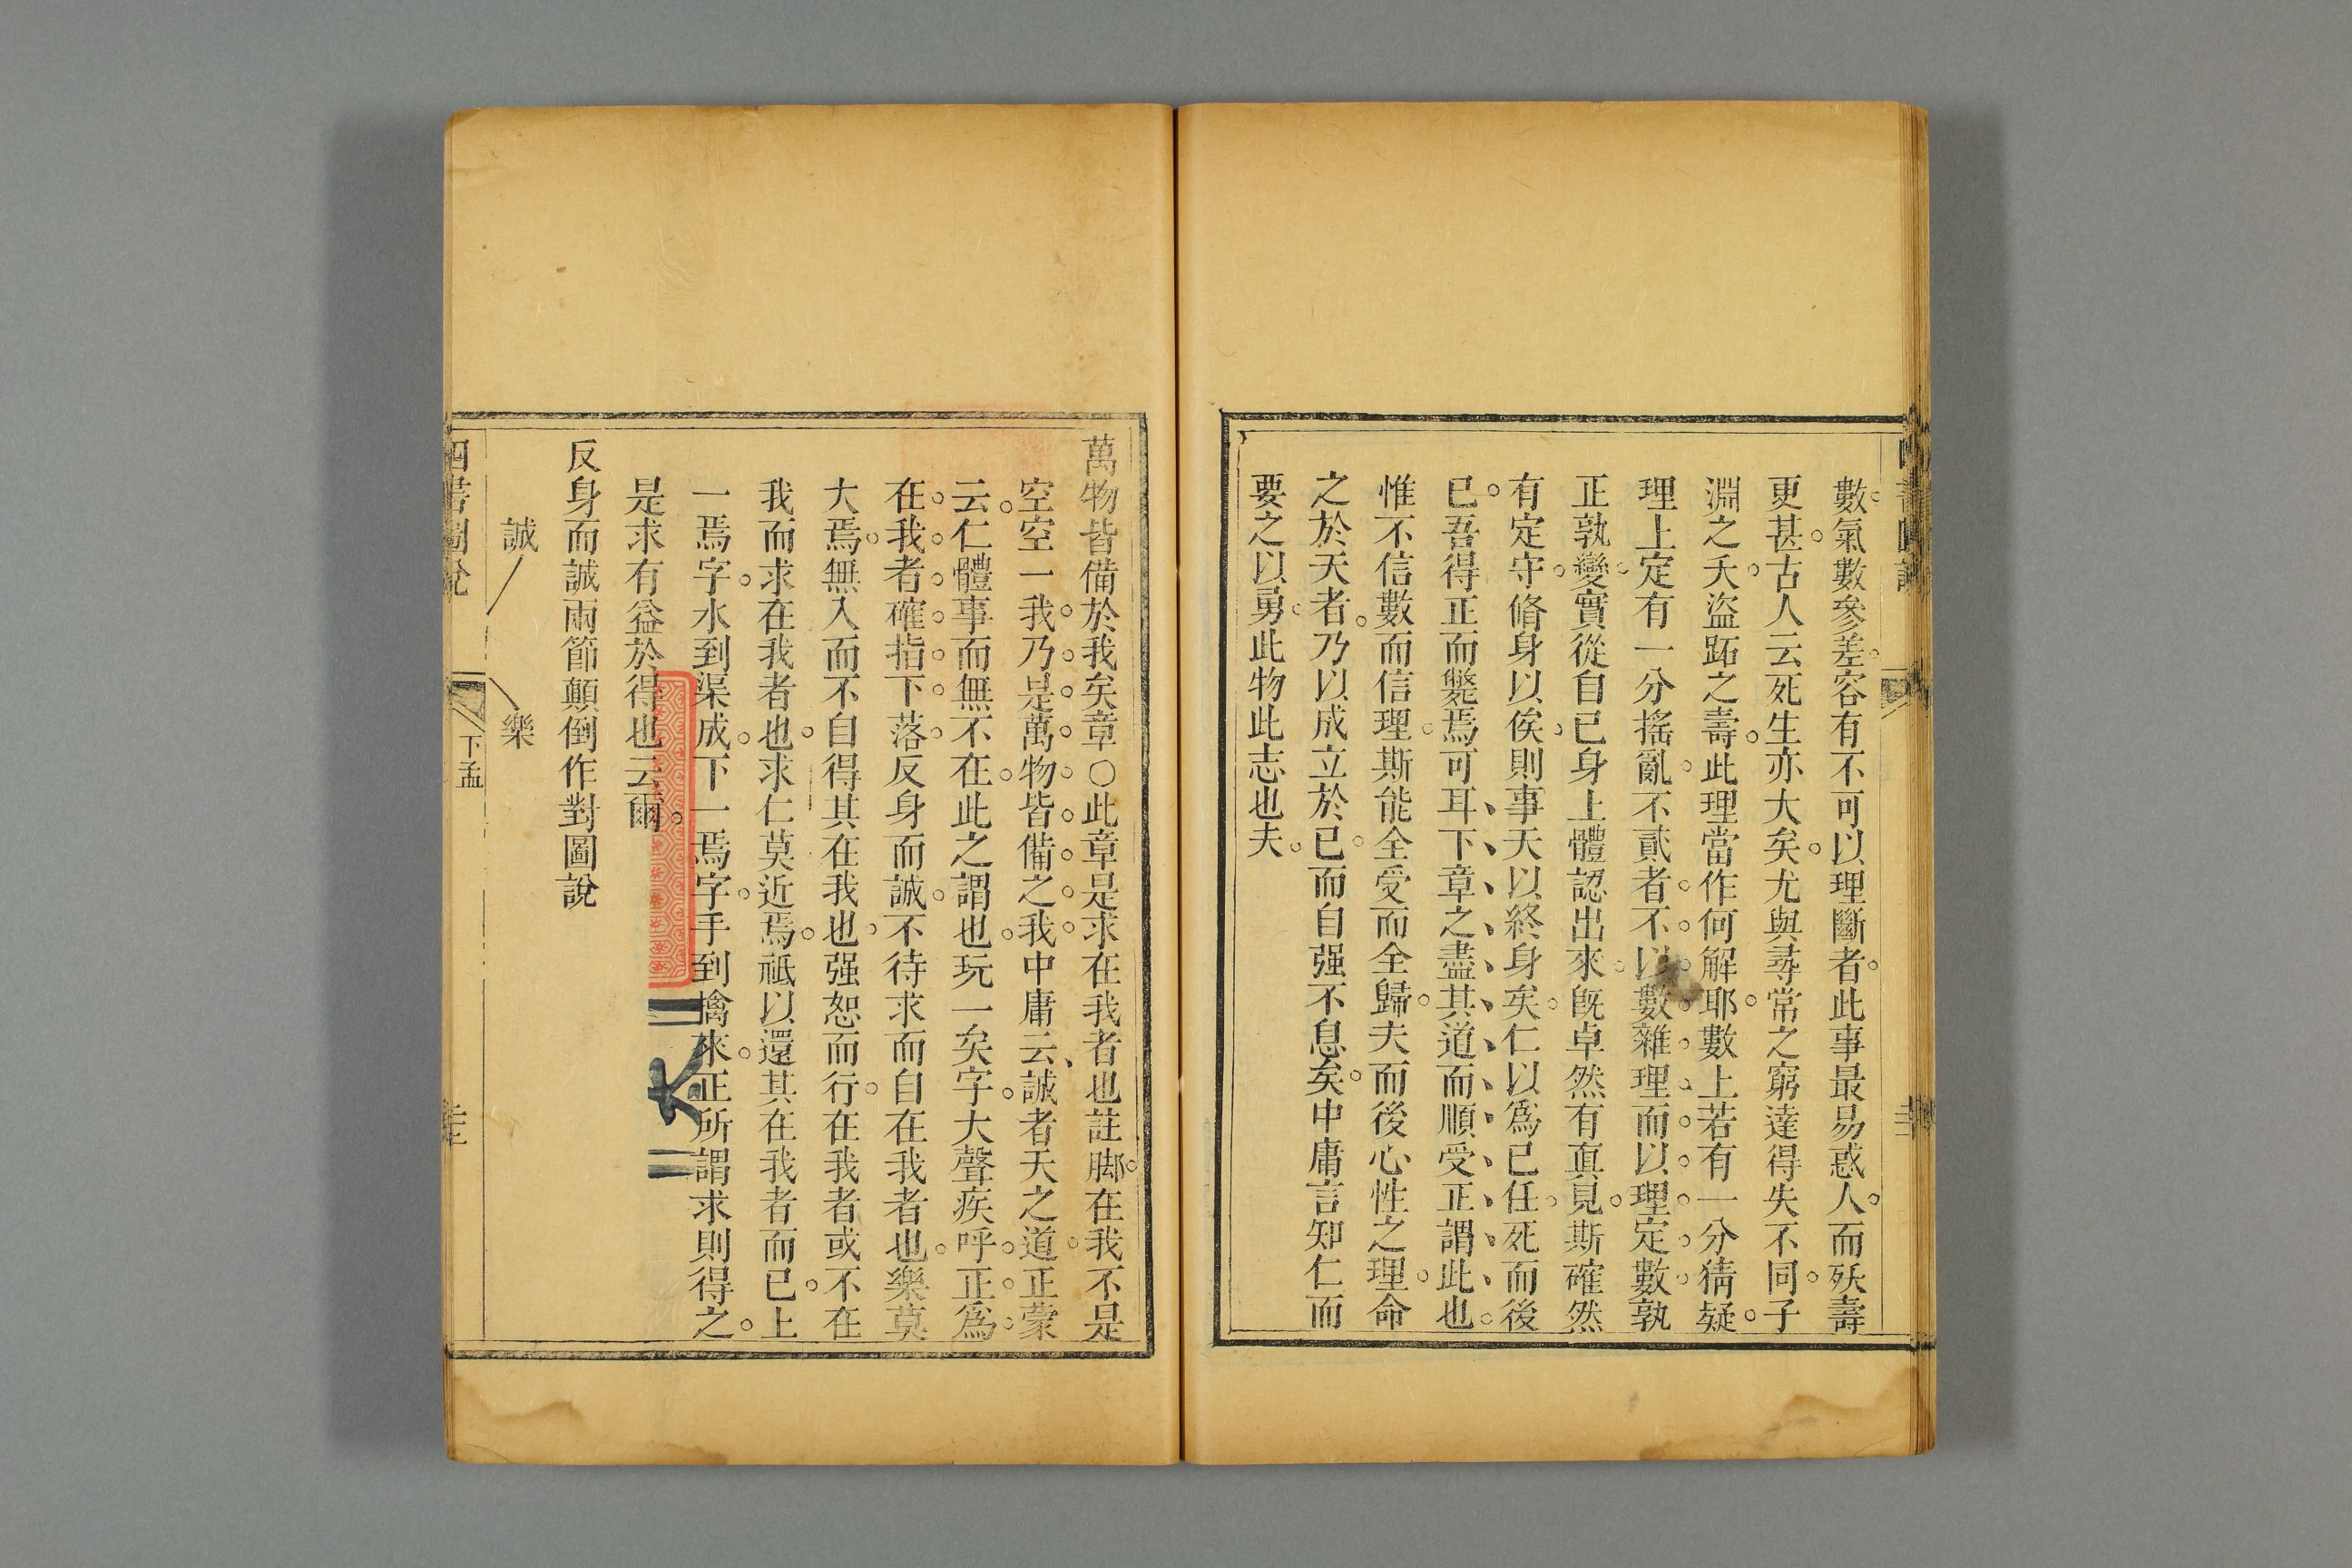 數氣數參差容有不可以理斷者此事最易惑人而殀壽
更甚古人云死生亦大矣尤與尋常之窮達得失不同子
淵之夭盜跖之壽此理當作何解耶數上若有一分猜疑
理上定有一分搖亂不貳者不以數雜理而以理定數孰
正孰變實從自己身上體認出來旣卓然有真見斯確然
有定守脩身以俟則事天以終身矣仁以爲已任死而後
已吾得正而斃焉可耳下章之盡其道而順受正謂此也
惟不信數而信理斯能全受而全歸夫而後心性之理命
之於天者乃以成立於已而自强不息矣中庸言知仁而
要之以勇此物此志也夫
萬物皆備於我矣章○此章是求在我者也註脚在我不是
空空一我乃是萬物皆備之我中庸云誠者天之道正蒙
云仁體事而無不在此之謂也玩一矣字大聲疾呼正爲
在我者確指下落反身而誠不待求而自在我者也樂莫
大焉無入而不自得其在我也强恕而行在我者或不在
我而求在我者也求仁莫近焉祗以還其在我者而已上
一焉字水到渠成下一焉字手到擒來正所謂求則得之
是求有益於得也云爾
反身而誠兩節顛倒作對圖說
誠
樂
四書圖說
下孟